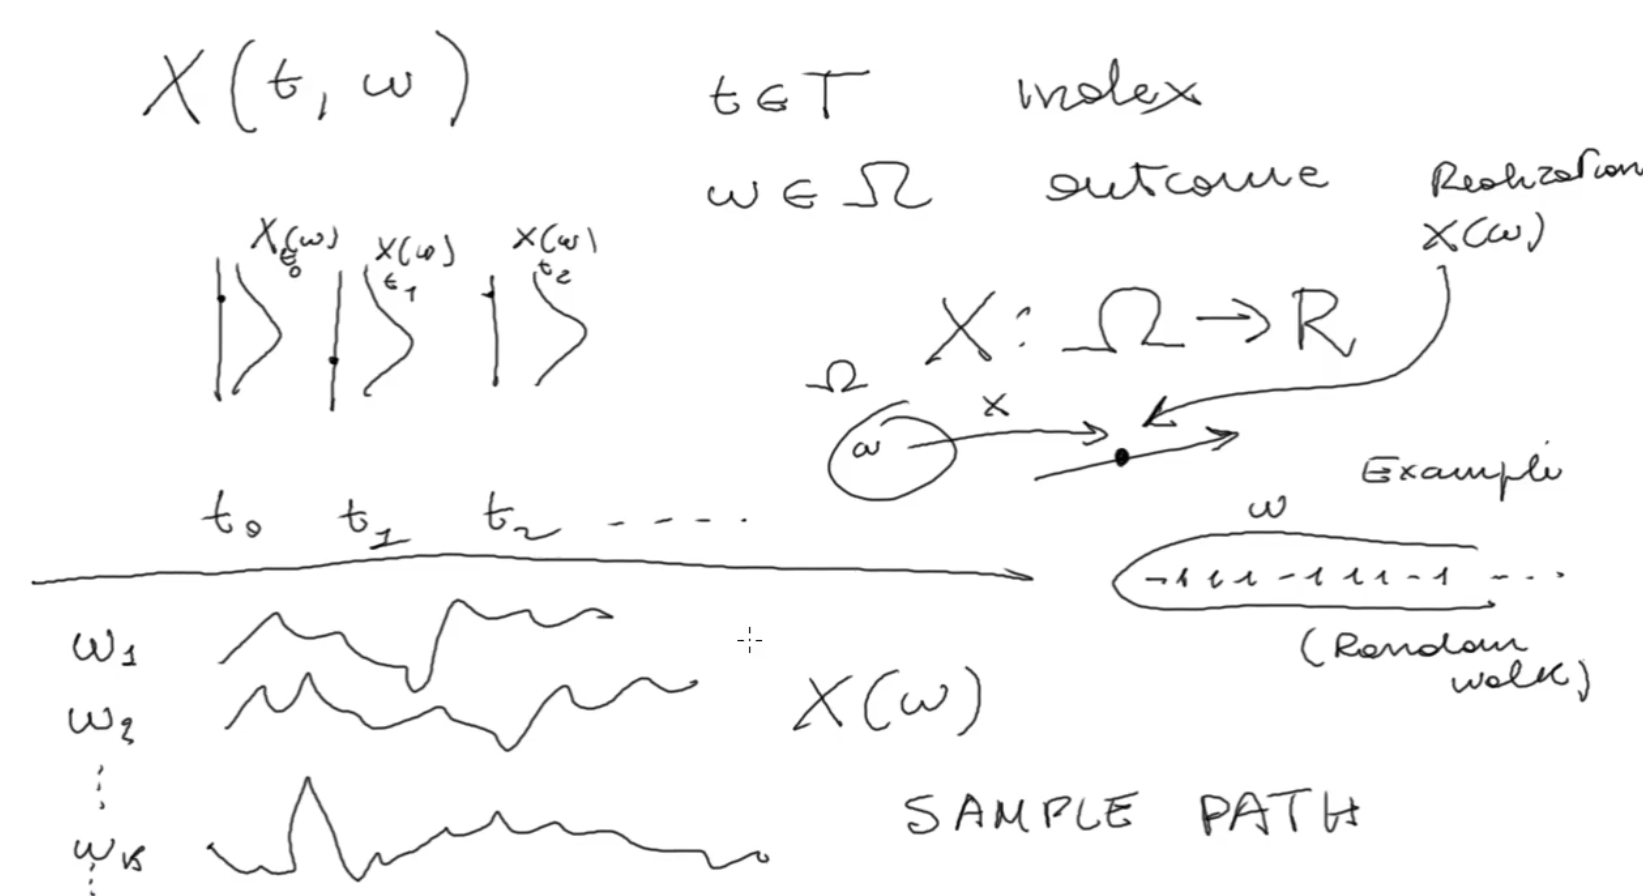 X(t, ω)
t ∈ T index
ω ∈ Ω outcome
Realization
X(ω)
X_t₀(ω) X_t₁(ω) X_t₂(ω)
X : Ω → R
Ω
ω
X
t₀ t₁ t₂ - - - - .
Example
ω
-1 1 1 -1 1 1 -1 - - .
(Random
walk)
ω₁
ω₂
X(ω)
SAMPLE PATH